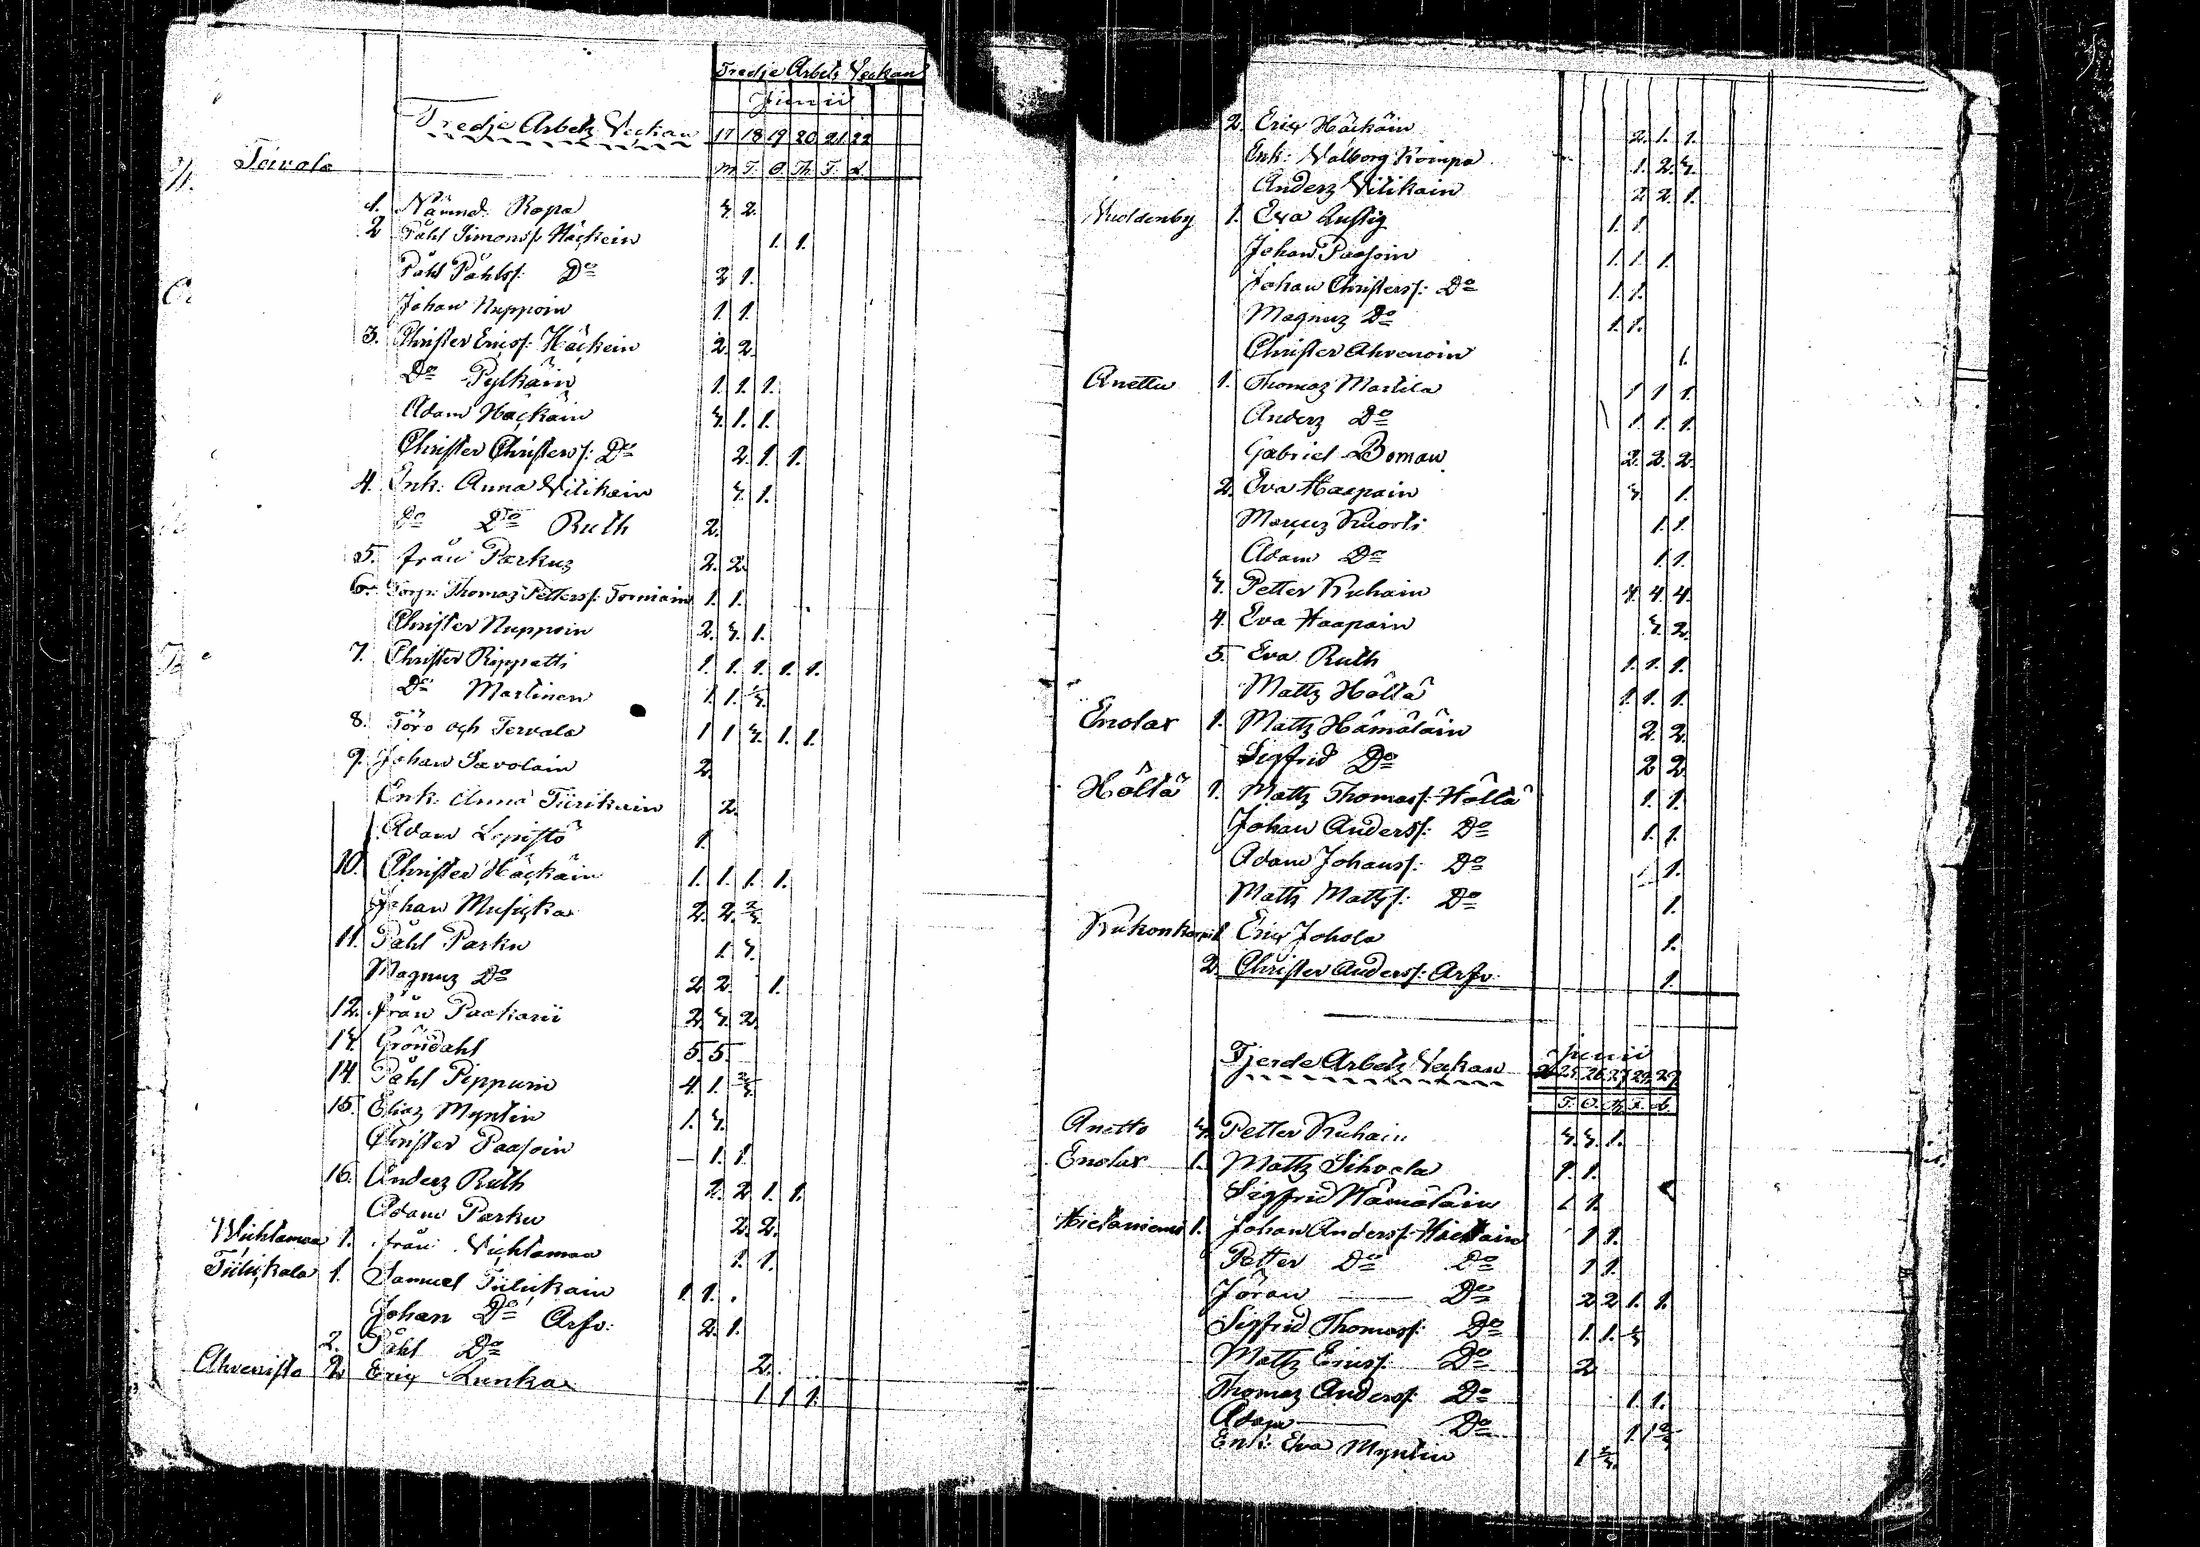 Tredje Arbetz Veckan
Junii
Tredje Arbetz Veckan 17 18 19 20 21 22
M T. O. Th T. L
Tervola
1. Nämnd. Ropa 3. 2.
2 Påhl Simonss: Häckein 1. 1.
Påhl Påhlss: Do 2 1.
Johan Nuppoin 1 1.
3. Christer Ericss: Häckein 2. 2.
Do Pylkäin 1. 1. 1.
Adam Häckäin 3. 1. 1.
Christer Christerss: Do 2. 1. 1.
4. Enk: Anna Vilikain 3. 1.
Do Do Ruth 2.
5. från Parkuz 2. 2.
6. Torp: Thomaz Petterss: Torniain 1. 1.
Christer Nuppoin 2. 3. 1.
7. Christer Rippatti 1. 1. 1. 1. 1.
Do Martinen 1. 1. 1/3.
8. Törö och Tervala 1 1 3. 1. 1.
9. Johan Savolain 2.
Enk: Anna Tiirikain 2.
Adam Lepistö 1.
10. Christer Häckäin 1. 1. 1. 1.
Johan Musicka 2. 2. 2/3.
11. Påhl Parku 1. 3.
Magnuz Do 2 2. 1.
12. från Paakarii 2. 3. 2.
13. Gröndahl 5. 5.
14. Påhl Pippurin 4. 1. 2/3
15. Eliaz Myntin 1. 3.
Christer Paasoin — 1. 1.
16. Anderz Ruth 2. 2 1. 1.
Adam Parku 2. 2.
Wichtamaa 1. från Vichtamaa 1. 1.
Tiilickala 1. Samuel Tiilickain 1. 1.
Johan Do Arfv: 2. 1.
2. Påhl Do 2.
Ahvenisto 2 Eric Lunkar 1 1 1.
2. Eric Häckäin 2. 1. 1.
Enk: Valborg Kompa 1. 2. 3.
Anderz Vilikain 2 2. 1.
1. Eva 1. 1.
Johan Paasoin 1. 1. 1.
Johan Christerss: Do 1. 1.
Magnuz Do 1. 1.
Christer Ahvenoin 1.
Anettu 1. Thomaz Martila 1 1 1.
Anderz Do 1. 1. 1.
Gabriel Boman 2. 2. 2.
2. Eva Haapain 3. 1.
Kuorti 1. 1.
Adam Do 1. 1.
3. Petter Kuhain 4. 4. 4.
4. Eva Haapain 3. 2.
5. Eva Ruth 1. 1. 1.
Mattz Höltä 1. 1. 1.
Enolax 1. Mattz Hämäläin 2. 2.
Sigfrid Do 2 2.
Höltä 1. Mattz Thomass: Höltä 1. 1.
Johan Anderss: Do 1. 1.
Adam Johanss: Do 1.
Mattz Mattzs: Do 1.
Kukonkorpi 1 Eric Johola 1.
2 Christer Anderss: Arfv: 1.
Fjerde Arbetz Veckan Junii
25. 26. 27 28. 29
T. O. Th F. L.
Anetto 3. Petter Kuhain 3. 3. 1.
Enolax 1. Mattz Sihvola 1 1.
Sigfrid Hämäläin 1 1.
Hietaniemi 1. Johan Anderss: Hietain 1 1.
Petter Do Do 1 1.
Jöran — Do 2 2 1. 1.
Sigfrid Thomass: Do 1. 1. 3
Mattz Ericss: Do 2
Thomaz Anderss: Do 1. 1.
Adam — Do 1. 1 2/3
Enk: Eva Myntin 1 2/3.